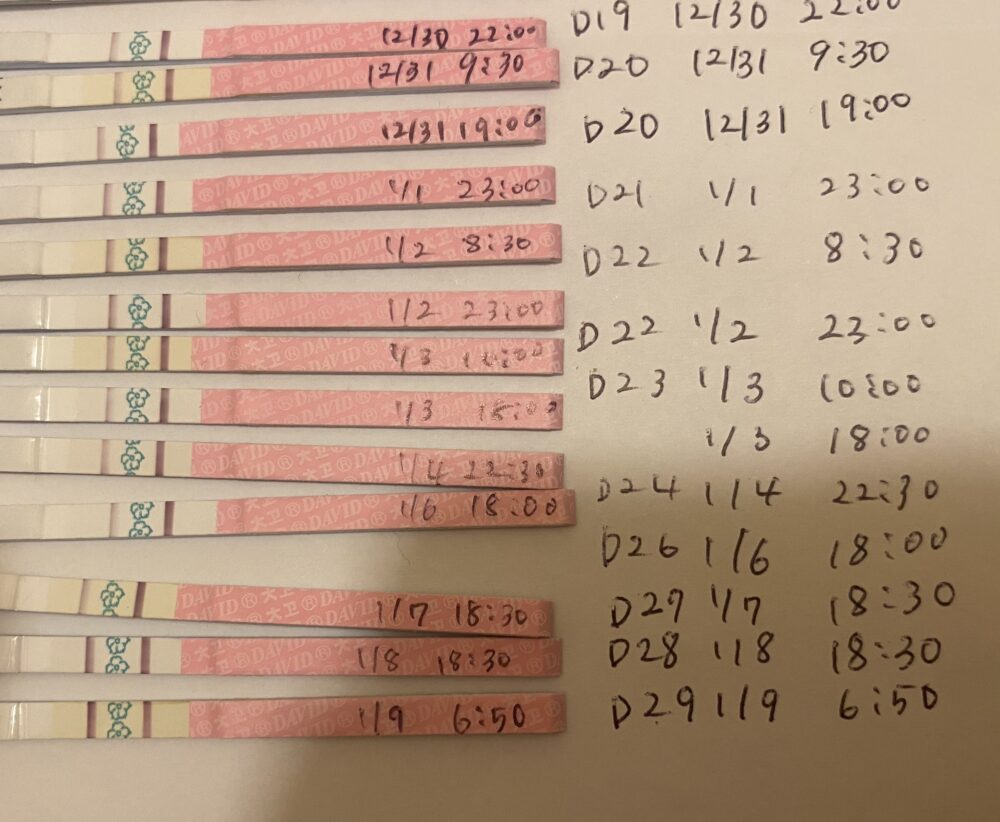 12/30 22:00 D19 12/30 22:00
12/31 9:30 D20 12/31 9:30
大卫®DAVID® 12/31 19:00 D20 12/31 19:00
®DAVID® 1/1 23:00 D21 1/1 23:00
1/2 8:30 D22 1/2 8:30
1/2 23:00 D22 1/2 23:00
1/3 10:00 D23 1/3 10:00
1/3 18:00 1/3 18:00
1/4 22:30 D24 1/4 22:30
大卫®DAVID® 1/6 18:00 D26 1/6 18:00
DAVID®大卫®DAVID® 1/7 18:30 D27 1/7 18:30
大卫®DAVID® 1/8 18:30 D28 1/8 18:30
®DAVID® 1/9 6:50 D29 1/9 6:50